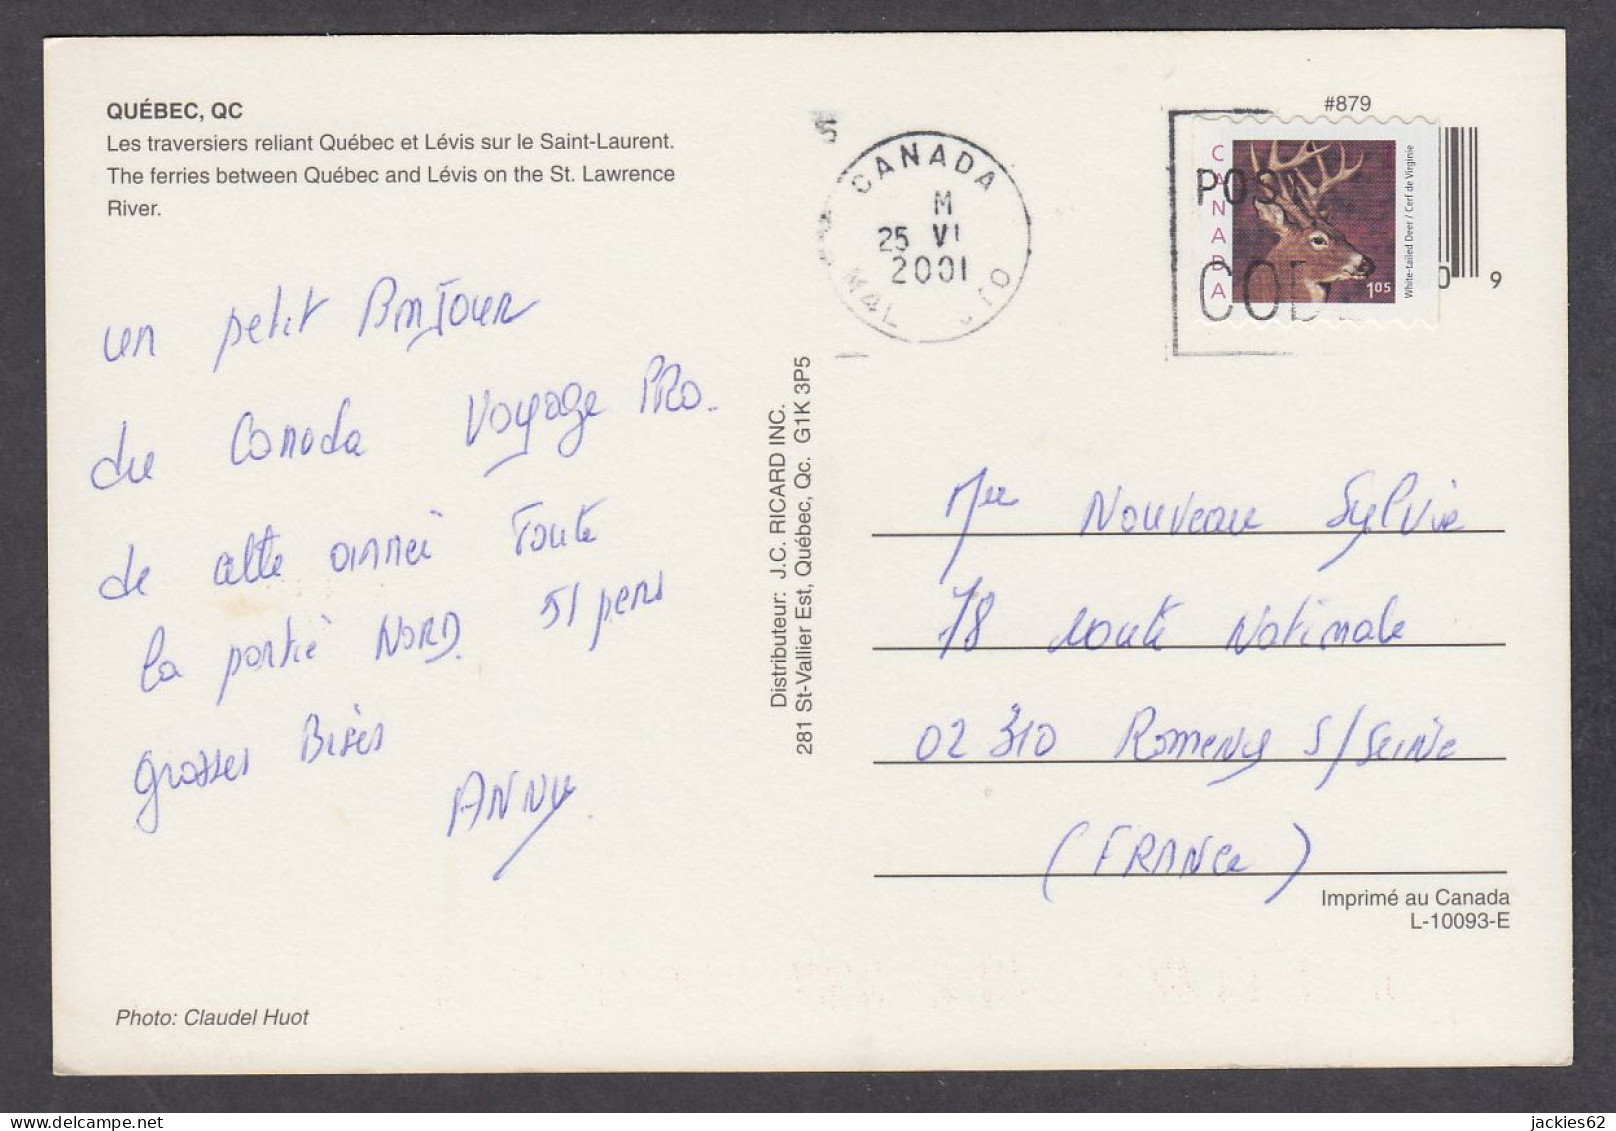 QUÉBEC, QC
Les traversiers reliant Québec et Lévis sur le Saint-Laurent.
The ferries between Québec and Lévis on the St. Lawrence
River.
un petit BonJour
du Canada Voyage PRO.
de cette année Toute
la partie NORD. 51 pers
grosses Bises
ANNY.
Photo: Claudel Huot
Distributeur: J.C. RICARD INC.
281 St-Vallier Est, Québec, Qc. G1K 3P5
CANADA
M
25 VI
2001
M4L
#879
CANADA
White-tailed Deer / Cerf de Virginie
1.05
POST
COD
0 9
Nouveau Sylvie
78 route Nationale
02 310 Romeny S/Seine
(FRANCE)
Imprimé au Canada
L-10093-E
jackies62